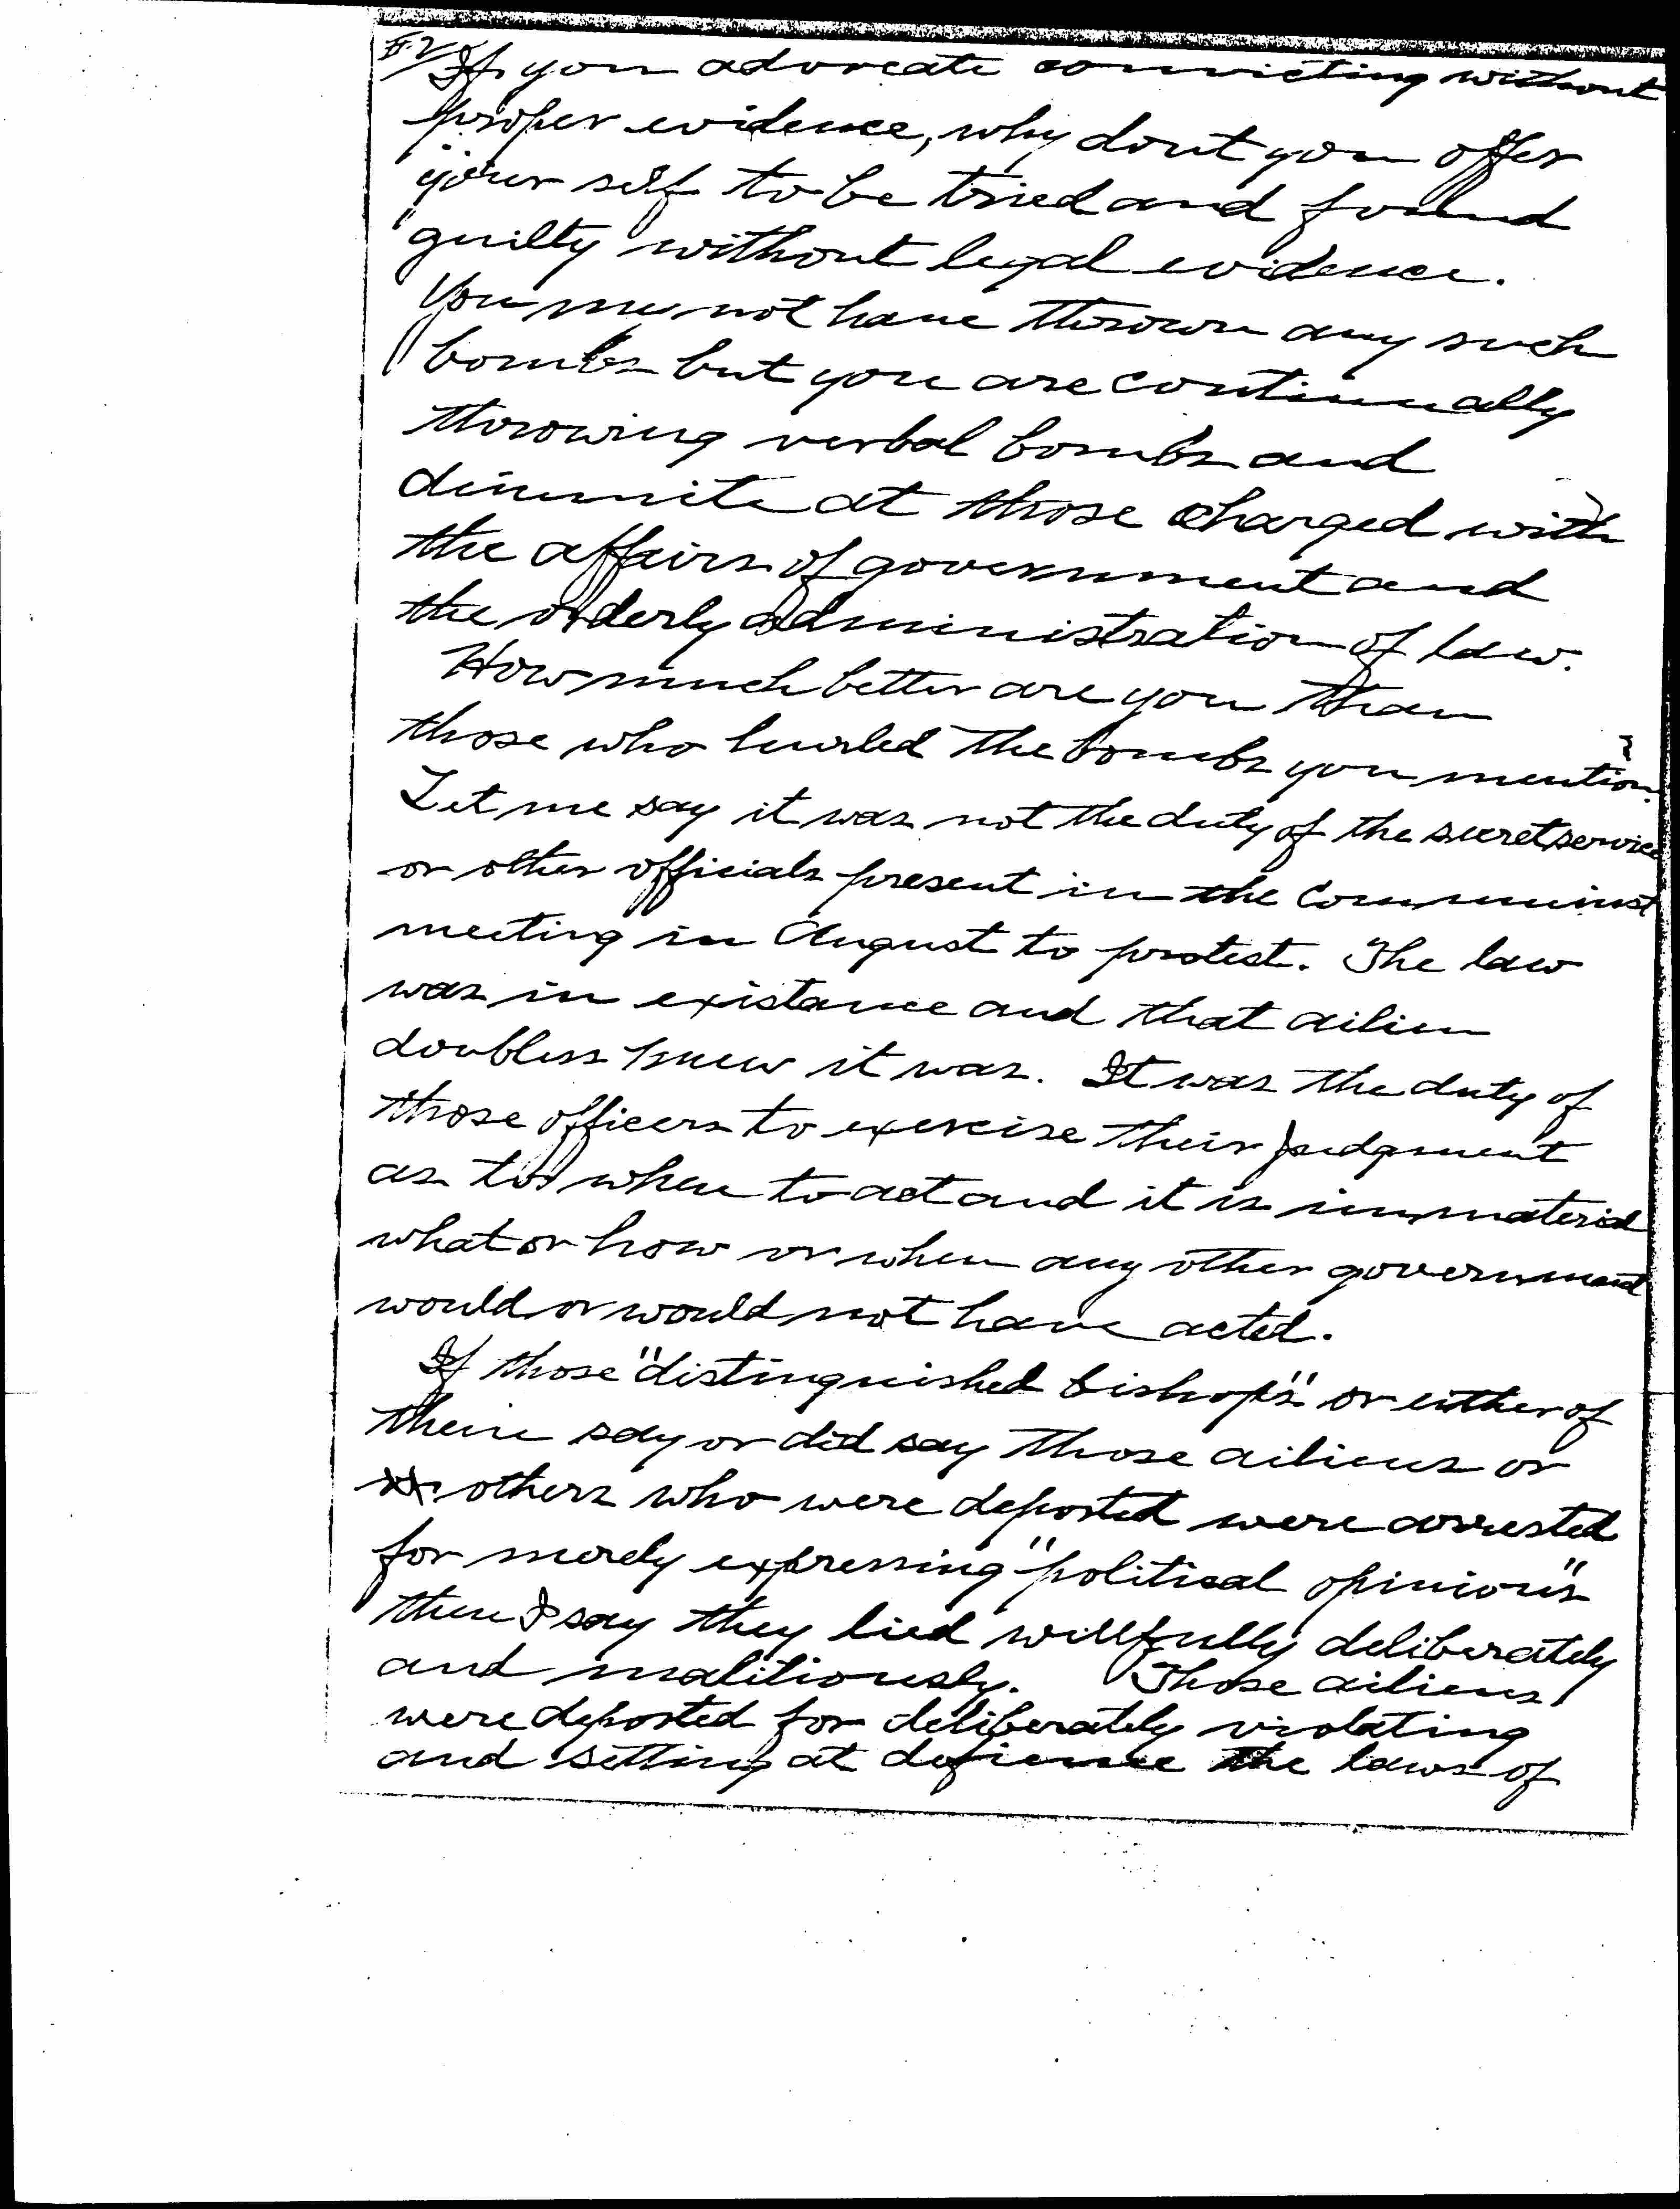 #2/ If you advocate convicting without
proper evidence, why dont you offer
your self to be tried and found
guilty without legal evidence.
You my not have thrown any such
bombs but you are continually
throwing verbal bombs and
dinimite at those charged with
the affairs of government and
the orderly administration of law.
How much better are you than
those who hurled the bombs you mention?
Let me say it was not the duty of the secret service
or other officials present in the Communist
meeting in August to protest. The law
was in existance and that ailien
doubless knew it was. It was the duty of
those officers to exercise their judgment
as to when to act and it is immaterial
what or how or when any other government
would or would not have acted.
If those "distinguished bishops" or either of
them say or did say those ailiens or
others who were deported were arrested
for merely expressing "political opinions"
then I say they lied willfully deliberately
and malitiously. Those ailiens
were deported for deliberately violating
and setting at defience the laws of